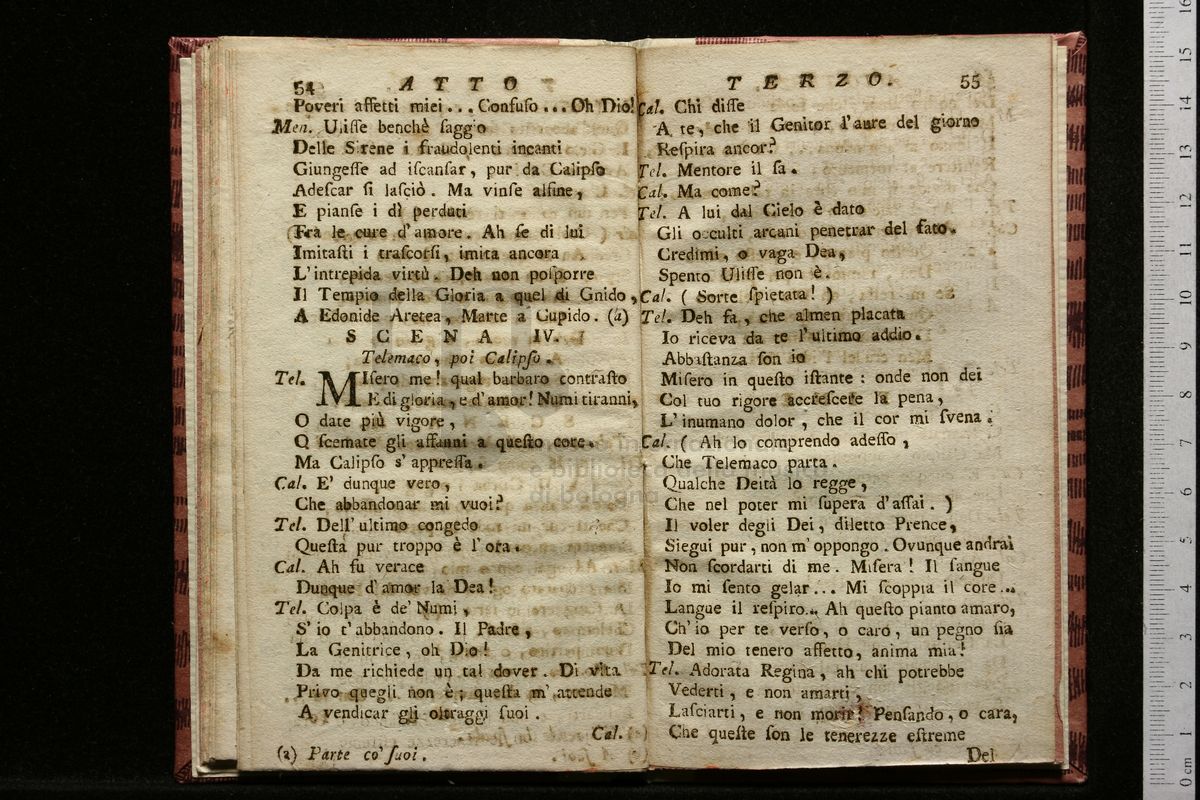 54 ATTO
Poveri affetti miei... Confuſo... Oh Dio!
Men. Uliſſe benchè ſaggio
Delle Sirene i fraudolenti incanti
Giungeſſe ad iſcanſar, pur da Calipſo
Adeſcar ſi laſciò. Ma vinſe alfine,
E pianſe i dì perduti
Fra le cure d'amore. Ah ſe di lui
Imitaſti i traſcorſi, imita ancora
L'intrepida virtù. Deh non poſporre
Il Tempio della Gloria a quel di Gnido,
A Edonide Aretea, Marte a Cupido. (a)
SCENA IV.
Telemaco, poi Calipſo.
Tel. MIſero me! qual barbaro contraſto
E di gloria, e d'amor! Numi tiranni,
O date più vigore,
O ſcemate gli affanni a queſto core.
Ma Calipſo s'appreſſa.
Cal. E' dunque vero,
Che abbandonar mi vuoi?
Tel. Dell'ultimo congedo
Queſta pur troppo è l'ora.
Cal. Ah fu verace
Dunque d'amor la Dea!
Tel. Colpa è de' Numi,
S'io t'abbandono. Il Padre,
La Genitrice, oh Dio!
Da me richiede un tal dover. Di vita
Privo quegli non è; queſta m'attende
A vendicar gli oltraggi ſuoi.
Cal.
(a) Parte co' ſuoi.
TERZO. 55
Cal. Chi diſſe
A te, che il Genitor l'aure del giorno
Reſpira ancor?
Tel. Mentore il ſa.
Cal. Ma come?
Tel. A lui dal Cielo è dato
Gli occulti arcani penetrar del fato.
Credimi, o vaga Dea,
Spento Uliſſe non è.
Cal. (Sorte ſpietata!)
Tel. Deh fa, che almen placata
Io riceva da te l'ultimo addio.
Abbaſtanza ſon io
Miſero in queſto iſtante: onde non dei
Col tuo rigore accreſcere la pena,
L'inumano dolor, che il cor mi ſvena.
Cal. (Ah lo comprendo adeſſo,
Che Telemaco parta.
Qualche Deità lo regge,
Che nel poter mi ſupera d'aſſai.)
Il voler degli Dei, diletto Prence,
Siegui pur, non m'oppongo. Ovunque andrai
Non ſcordarti di me. Miſera! Il ſangue
Io mi ſento gelar... Mi ſcoppia il core...
Langue il reſpiro... Ah queſto pianto amaro,
Ch'io per te verſo, o caro, un pegno ſia
Del mio tenero affetto, anima mia!
Tel. Adorata Regina, ah chi potrebbe
Vederti, e non amarti,
Laſciarti, e non morir! Penſando, o cara,
Che queſte ſon le tenerezze eſtreme
Del